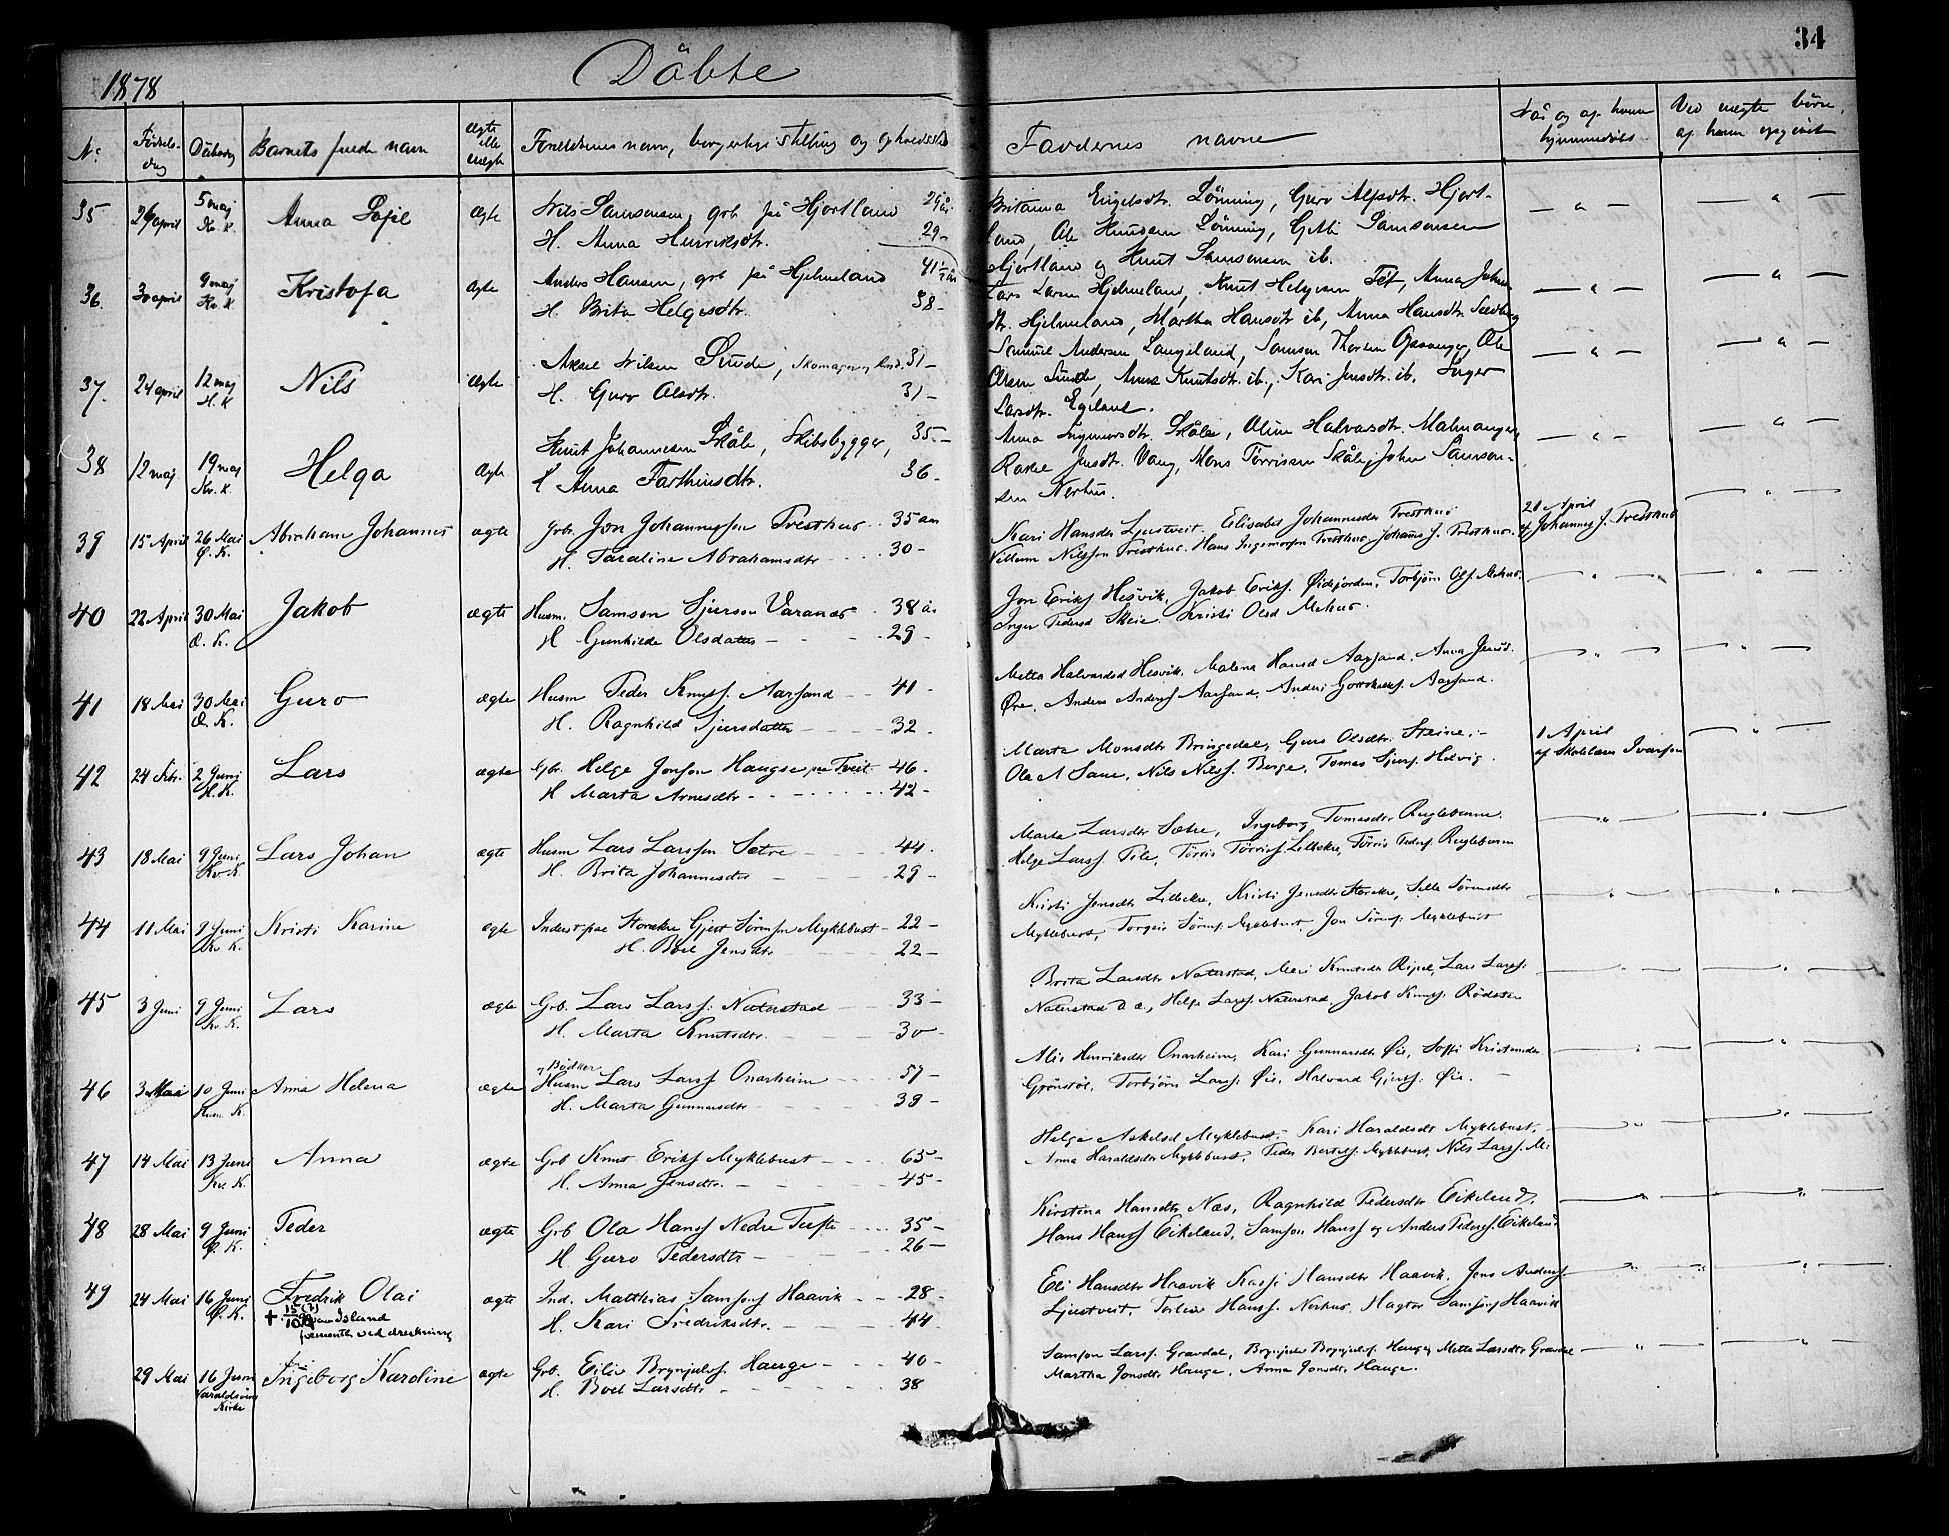 1878
Döbte
34
No
Födsels-
dag
Döbedag
Barnets fulde navn
Ægte
eller
uægte
Forældrenes navn, borgerlige stilling og opholdssted
Faddernes navne
Når og af hvem
hjemmedöbt
Ved uægte börn,
af hvem opgivet
35
26 april
5 maj
Kv. K.
Anna Sofie
Ægte
Nils Samsonsen, grb. på Hjortland 29 år
H. Anna Henriksdtr. 29 -
Britanna Engelsdtr. Lönning, Guro Alfsdtr. Hjort-
land, Ole Knudsen Lönning, Samsonsen
Hjortland og Knut Samsonsen ib.
36.
30 april
9 maj
Kv. K.
Kristofa
Ægte
Anders Hansen, grb på Hjelmeland 41½ år
H. Brita Helgesdtr. 38 -
Lars Larsen Hjelmeland, Knut Helgesen Tit, Anna Johns
dtr. Hjelmeland, Martha Hansdtr ib, Anna Hansdtr.
37.
24 april
12 maj
H. K
Nils
Ægte
Aksel Nilsen Sunde, Skomager 31 -
H. Guro Olsdtr. 31 -
Samuel Andersen Langeland, Samson Opsanger, Ole
Olsen Sunde, Anna Knutsdtr. ib., Kari Jensdtr. ib. Inger
Larsdtr. Egeland.
38
12 maj
19 maj
Kv. K.
Helga
Ægte
Knut Johannesen Skåle, Skibsbygger, 35 -
H Anna Farthinsdtr. 36 -
Anna Ingemarsdtr. Skåle, Halvarsdtr. Malmanger,
Rakel Jensdtr. Vang, Mons Törrissen Skåle, John Samson-
sen Nerhus.
39
15 April
26 Mai
Ø. K.
Abraham Johannes
ægte
Grb. Jon Johannessen Tresthus 35 aar
H. Taraline Abrahamsdtr 30 -
Kari Hansdtr Ljostveit. Elisabet Johannesdtr Tresthus
Villum Nilssen Tresthus. Hans Ingemarsen Tresthus. Johannes J. Tresthus.
21 April
af Johannes J. Tresthus
40
22 April
30 Mai
Ø. K.
Jakob
ægte
Husm. Samson Sjurson Varanes 38 år
H Gunhilde Olsdatter 29 -
Jon Eriks. Hesvik, Jakob Eriks. Øidsfjorden, Torbjörn Ols. Mehus
Inger Pedersd Skeie. Kristi Olsd Mehus.
41
18 Mai
30 Mai
Ø. K.
Guro
ægte
Husm Peder Knuts. Aarsand 41 -
H. Ragnhild Sjursdatter 32 -
Metta Halvardsd Hesvik, Malena Hansd Aarsand, Anna Jensd.
Øre, Anders Anders. Aarsand, Anders Aarsand.
42
24 Febr.
2 Juni
H. K.
Lars
ægte
Gbr. Helge Jonson Haugse paa Tveit 46 -
H Marta Arnesdtr 42 -
Marta Monsdtr Bringedal, Guro Olsdtr. Steine,
Ola A Sane, Nils Nilss. Berge, Tomas Sjurs. Helvig.
1 April
af Skolelærer Ivarson
43
18 Mai
9 Juni
Kv K.
Lars Johan
ægte
Husm Lars Larsson Sætre 44 -
H. Brita Johannesdtr 29 -
Marta Larsdtr Sætre, Ingeborg Tomasdtr Rugleberne.
Helge Larss Pile, Törris Törriss. Lilleekre, Törris Peders. Rugleberne
44
11 Mai
9 Juni
Kv. K.
Kristi Karine
ægte
Inderst paa Storekre Gjert Sörensen Myklebust 22 -
H. Boel Jensdtr 22 -
Kristi Jensdtr Lillekre, Kristi Jensdtr Storekre, Sille Sörensdtr
Myklebust, Torgeir Sörens. Myklebust, Jon Sörens. Myklebust
45
3 Juni
9 Juni
Kv. K.
Lars
ægte
Grb. Lars Larss. Naterstad 33 -
H. Marta Knutsdtr. 30 -
Brita Larsdtr Naterstad, Mari Knutsdtr Ripel, Lars Larss.
Naterstad d. æ., Helge Larss. Naterstad, Jakob Knuts. Rödseter
46
3 Mai
10 Juni
K.
Anna Helena
ægte
& Bödker
Husm Lars Larss Onarheim 57 -
H. Marta Gunnarsdtr 39 -
Alis Henriksdtr Onarheim, Kari Gunnarsdtr Øie, Soffi Kristensdtr
Grönstöl, Torbjörn Larss. Øie, Halvard Gjerts. Øie.
47
14 Mai
13 Juni
Kv. K.
Anna
ægte
Grb Knut Eriks Myklebust 65 -
H. Anna Jensdtr. 45 -
Helga Askelsd Myklebust, Kari Haraldsdtr Myklebust,
Anna Haraldsdtr Myklebust, Peder Bertels. Myklebust, Nils Larss. M:
48
28 Mai
9 Juni
Ø. K.
Peder
ægte
Grb Ola Hanss Nedre Tufte 35 -
H Guro Pedersdtr 26 -
Kirstina Hansdtr Næs, Ragnhild Pedersdtr Eikeland,
Hans Hanss Eikeland, Samson Hanss og Anders Peders. Eikeland
49
24 Mai
16 Juni
Ø. K.
Fredrik Olai
† 15/10 (?) Island
formentlig ved drukning
ægte
Ind. Matthias Samsons Haavik 28 -
H. Kari Fredriksdtr. 44 -
Eli Hansdtr Haavik Hansdtr Haavik, Jens Anders.
Ljostveit, Torleiv Hanss. Nerhus, Hagtor Samsons Haavik
29 Mai
16 Juni
Varaldsöens
Kirke
Ingeborg Karoline
ægte
Grb. Eiliv Brynjulvs. Hauge 40 -
H. Boel Larsdtr 38
Samson Larss. Gravdal, Brynjulv Brynjulvs. Hauge, Mette Larsdtr Gravdal
Martha Jonsdtr Hauge, Anna Jonsdtr Hauge.